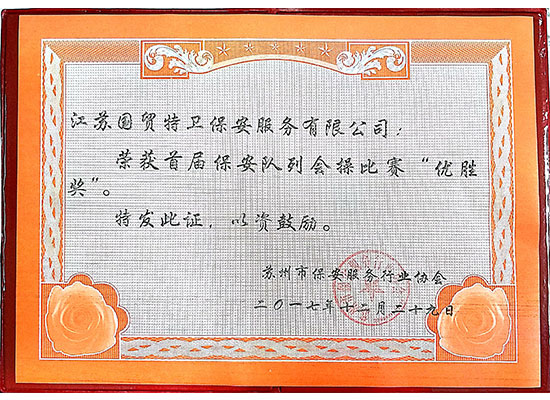 江苏国贸特卫保安服务有限公司：
荣获首届保安队列会操比赛“优胜
奖”。
特发此证，以资鼓励。
苏州市保安服务行业协会
二〇一七年十二月二十九日